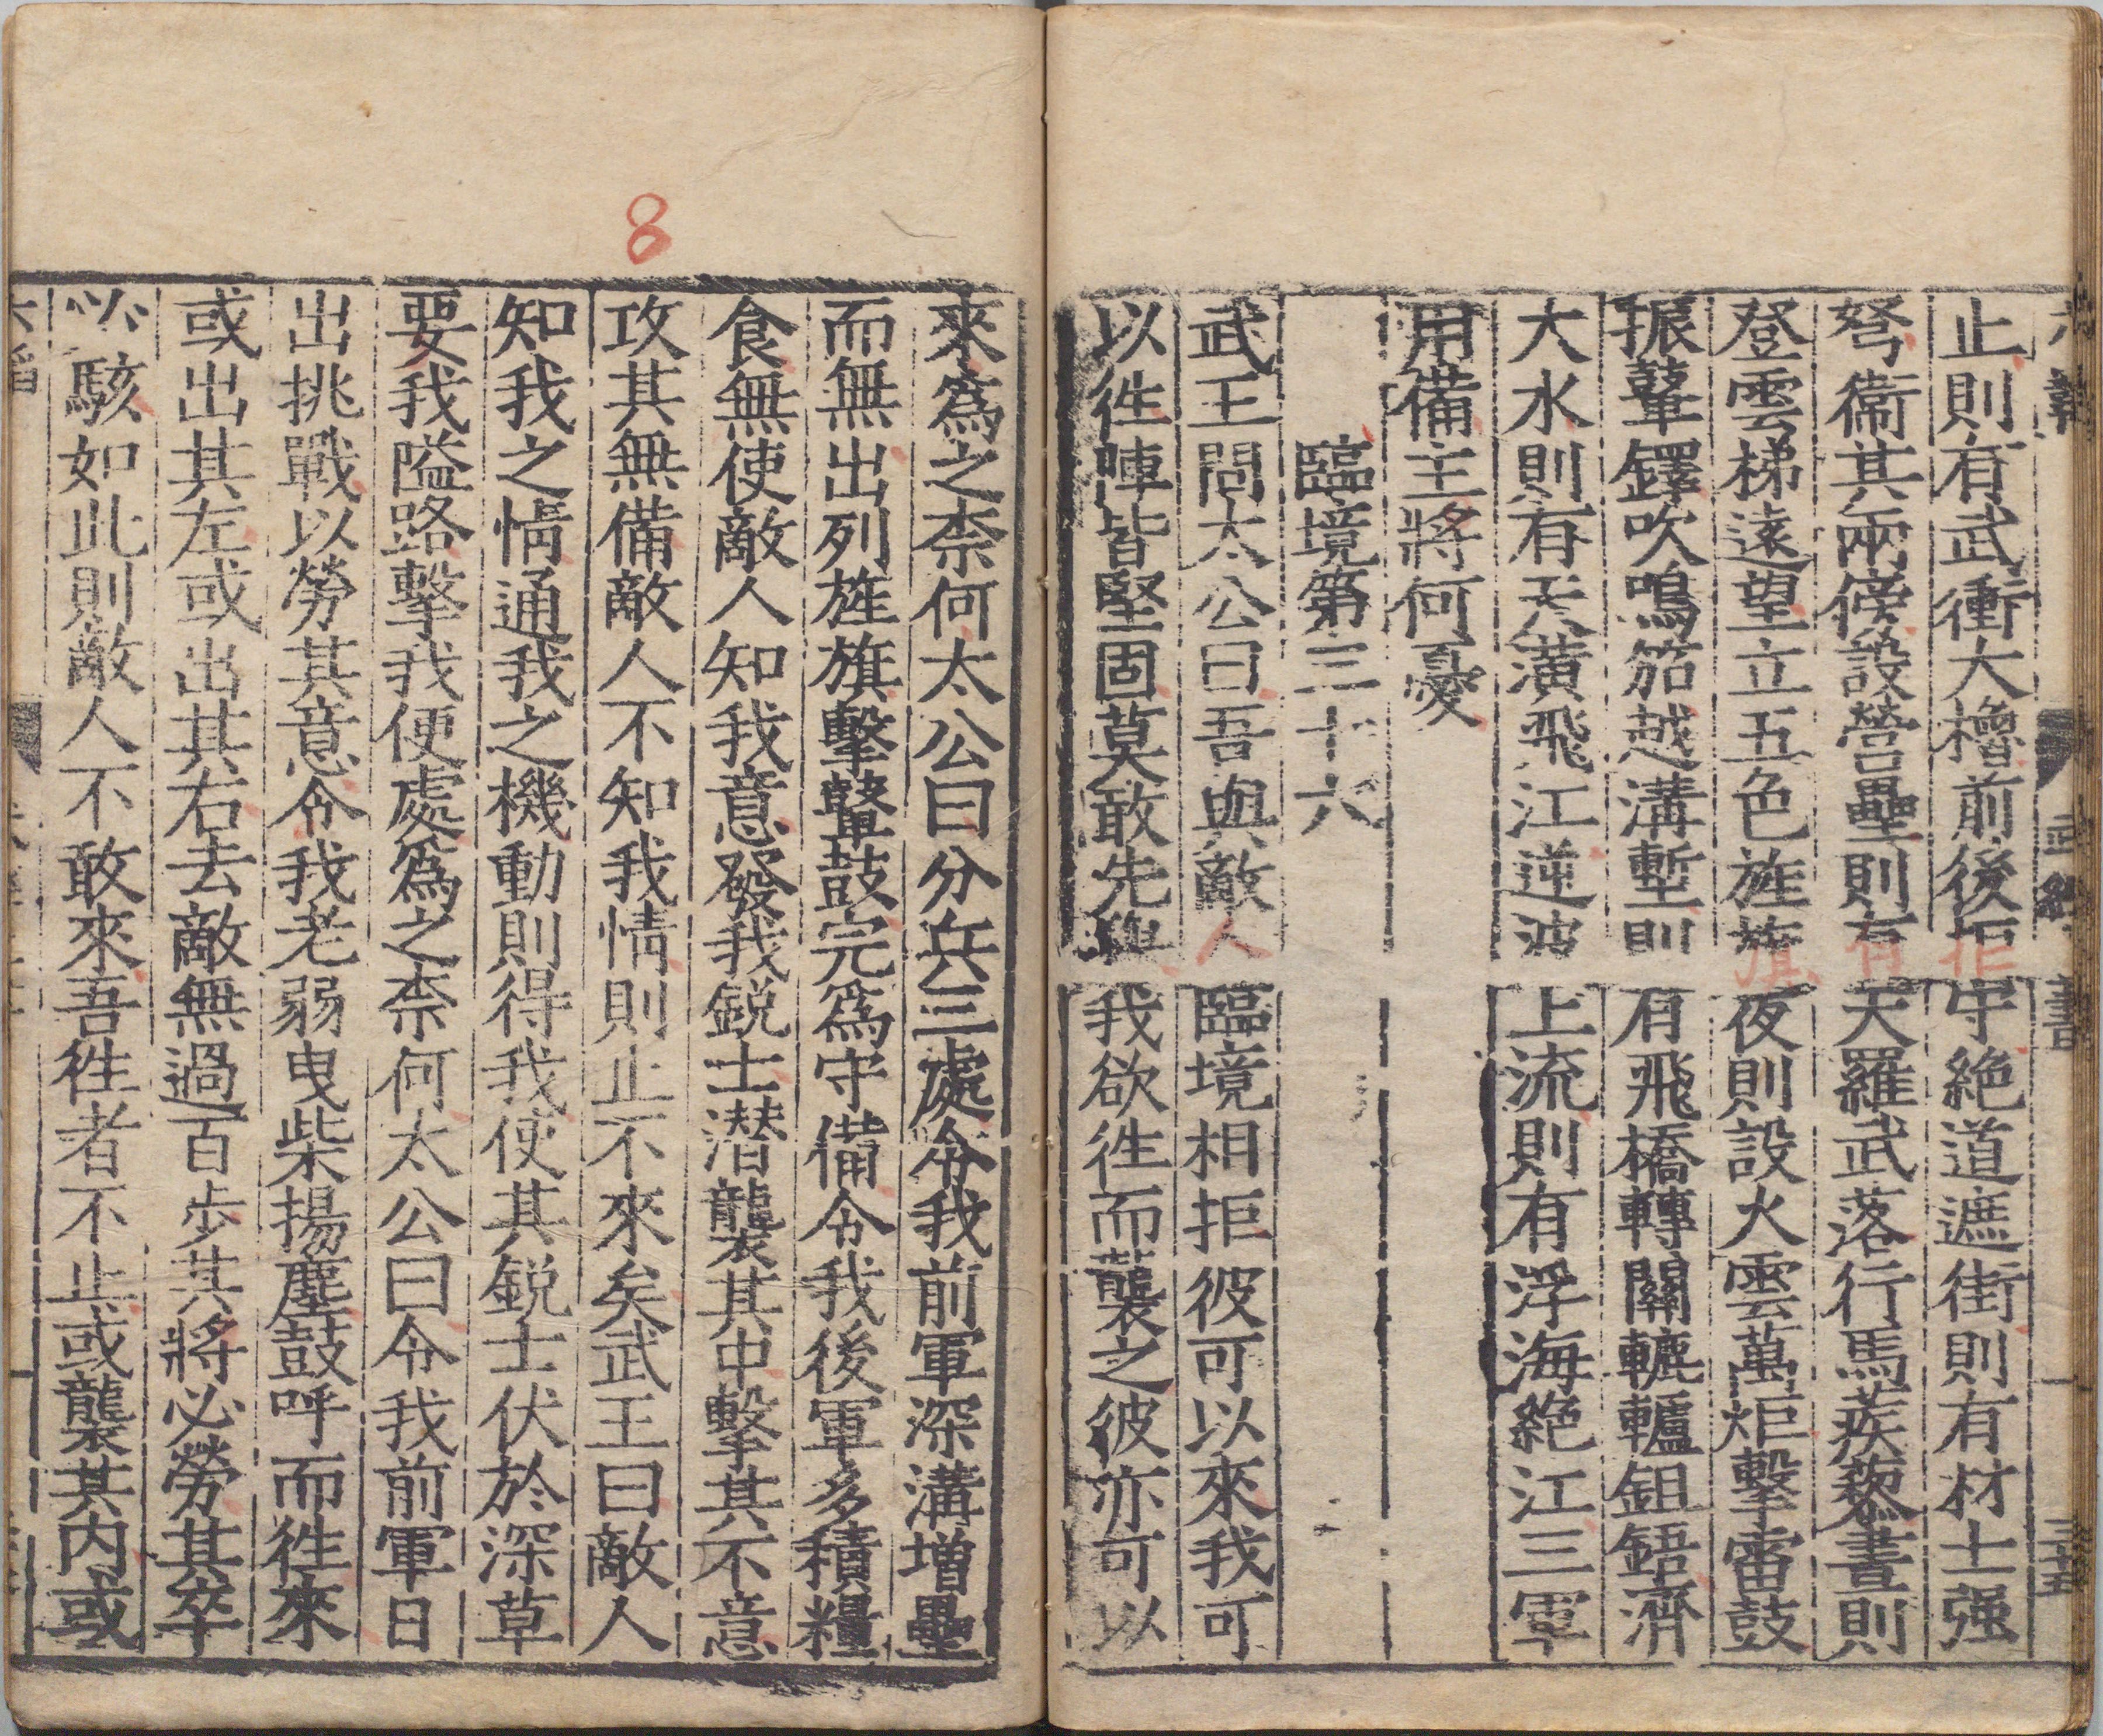 止則有武衝大櫓前後拒守絶道遮街則有材士强
弩衞其兩傍設營壘則有天羅武落行馬蒺藜晝則
登雲梯遠望立五色旌旗夜則設火雲萬炬擊雷鼓
振鼙鐸吹鳴笳越溝塹則有飛橋轉關轆轤鉏鋙濟
大水則有天潢飛江逆波上流則有浮海絶江三軍
用備主將何憂
臨境第三十六
武王問太公曰吾與敵人臨境相拒彼可以來我可
以徃陣皆堅固莫敢先舉我欲徃而襲之彼亦可以
來爲之柰何太公曰分兵三處令我前軍深溝增壘
而無出列旌旗擊鼙鼓完爲守備令我後軍多積糧
食無使敵人知我意發我銳士潛襲其中擊其不意
攻其無備敵人不知我情則止不來矣武王曰敵人
知我之情通我之機動則得我使其銳士伏於深草
要我隘路擊我便處爲之柰何太公曰令我前軍日
出挑戰以勞其意令我老弱曳柴揚塵鼓呼而徃來
或出其左或出其右去敵無過百步其將必勞其卒
必駭如此則敵人不敢來吾徃者不止或襲其内或
8